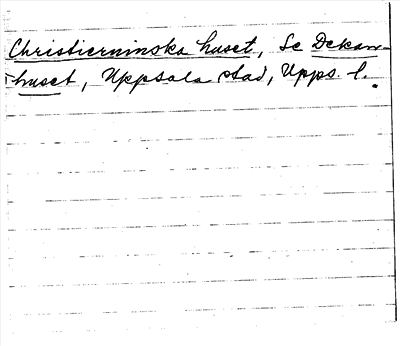 Christierninska huset, Se Dekan-
huset, Uppsala stad, Upps. l.